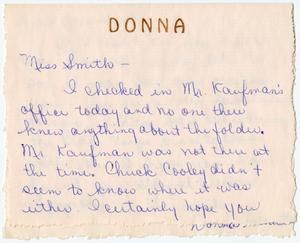 DONNA
Miss Smith —
I checked in Mr. Kaufman's
office today and no one there
knew anything about the folder.
Mr. Kaufman was not there at
the time. Chuck Cooley didn't
seem to know where it was
either. I certainly hope you
Donna